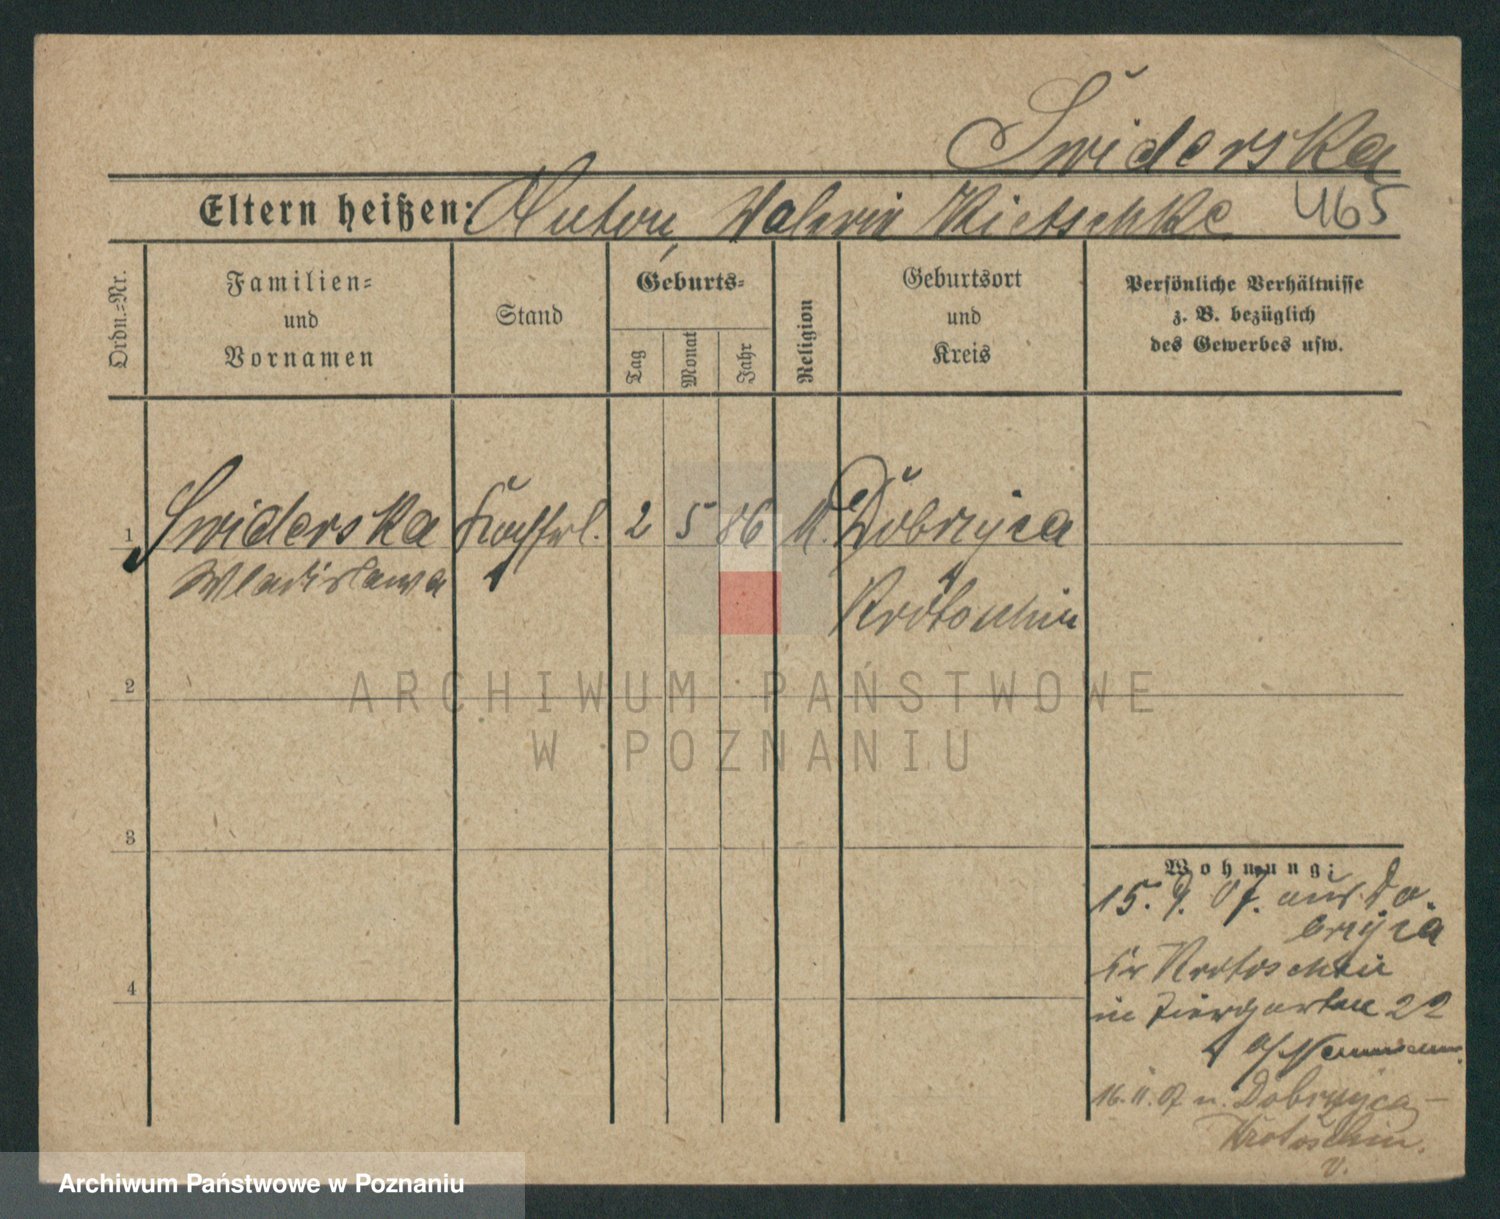 Świderska
Eltern heißen: Anton, Valerie Nietschke 465
Ordn.=Nr.
Familien=
und
Vornamen
Stand
Geburts=
Tag
Monat
Jahr
Religion
Geburtsort
und
Kreis
Persönliche Verhältnisse
z. B. bezüglich
des Gewerbes usw.
1 Swiderska 2 5 86 k. Dobrzyca
Wladislawa Krotoschin
2
ARCHIWUM PAŃSTWOWE
W POZNANIU
3
Wohnung:
15. 9. 07. aus Do
brzyca
Kr Krotoschin
4
in Tiergarten 22
16. 11. 07 n. Dobrzyca-
Krotoschin.
v.
Archiwum Państwowe w Poznaniu